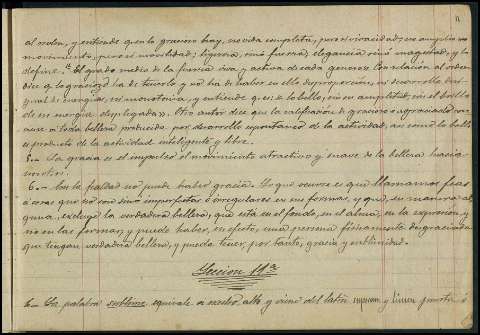 11
al orden, y entiende que en lo gracioso hay, no vida completa, pero sí vivacidad; no amplio
movimiento, pero sí movilidad; ligereza, sinó fuerza; elegancia, sinó magestad, y lo
define: "El grado medio de la fuerza viva y activa de cada genero. Con relación al orden
dice q. lo gracioso ha de tenerlo y no ha de haber en ello desproporción, ni desarrollo desi-
gual de energías, ni monotonía, y entiende que es lo bello, no en amplitud, sí en el brillo
de su energía desplegada». Otro autor dice que la calificación de gracioso o agraciado con-
viene a toda belleza producida por desarrollo espontáneo de la actividad, así como lo bello
es producto de la actividad inteligente y libre.
5.- La gracia es el impulso el movimiento atractivo y suave de la belleza hacia
nosotros.
6.- En la fealdad no puede haber gracia. Lo que ocurre es que llamamos feas
á cosas que no son sinó imperfectas ó irregulares en sus formas, y que, en manera al-
guna, excluye la verdadera belleza, que está en el fondo, en el alma, en la expresión y
no en las formas, y puede haber, en efecto, una persona físicamente desgraciada
que tengan verdadera belleza, y puede tener, por tanto, gracia y sublimidad.
Leccion 11ª
La palabra sublime equivale a alto y viene del latín